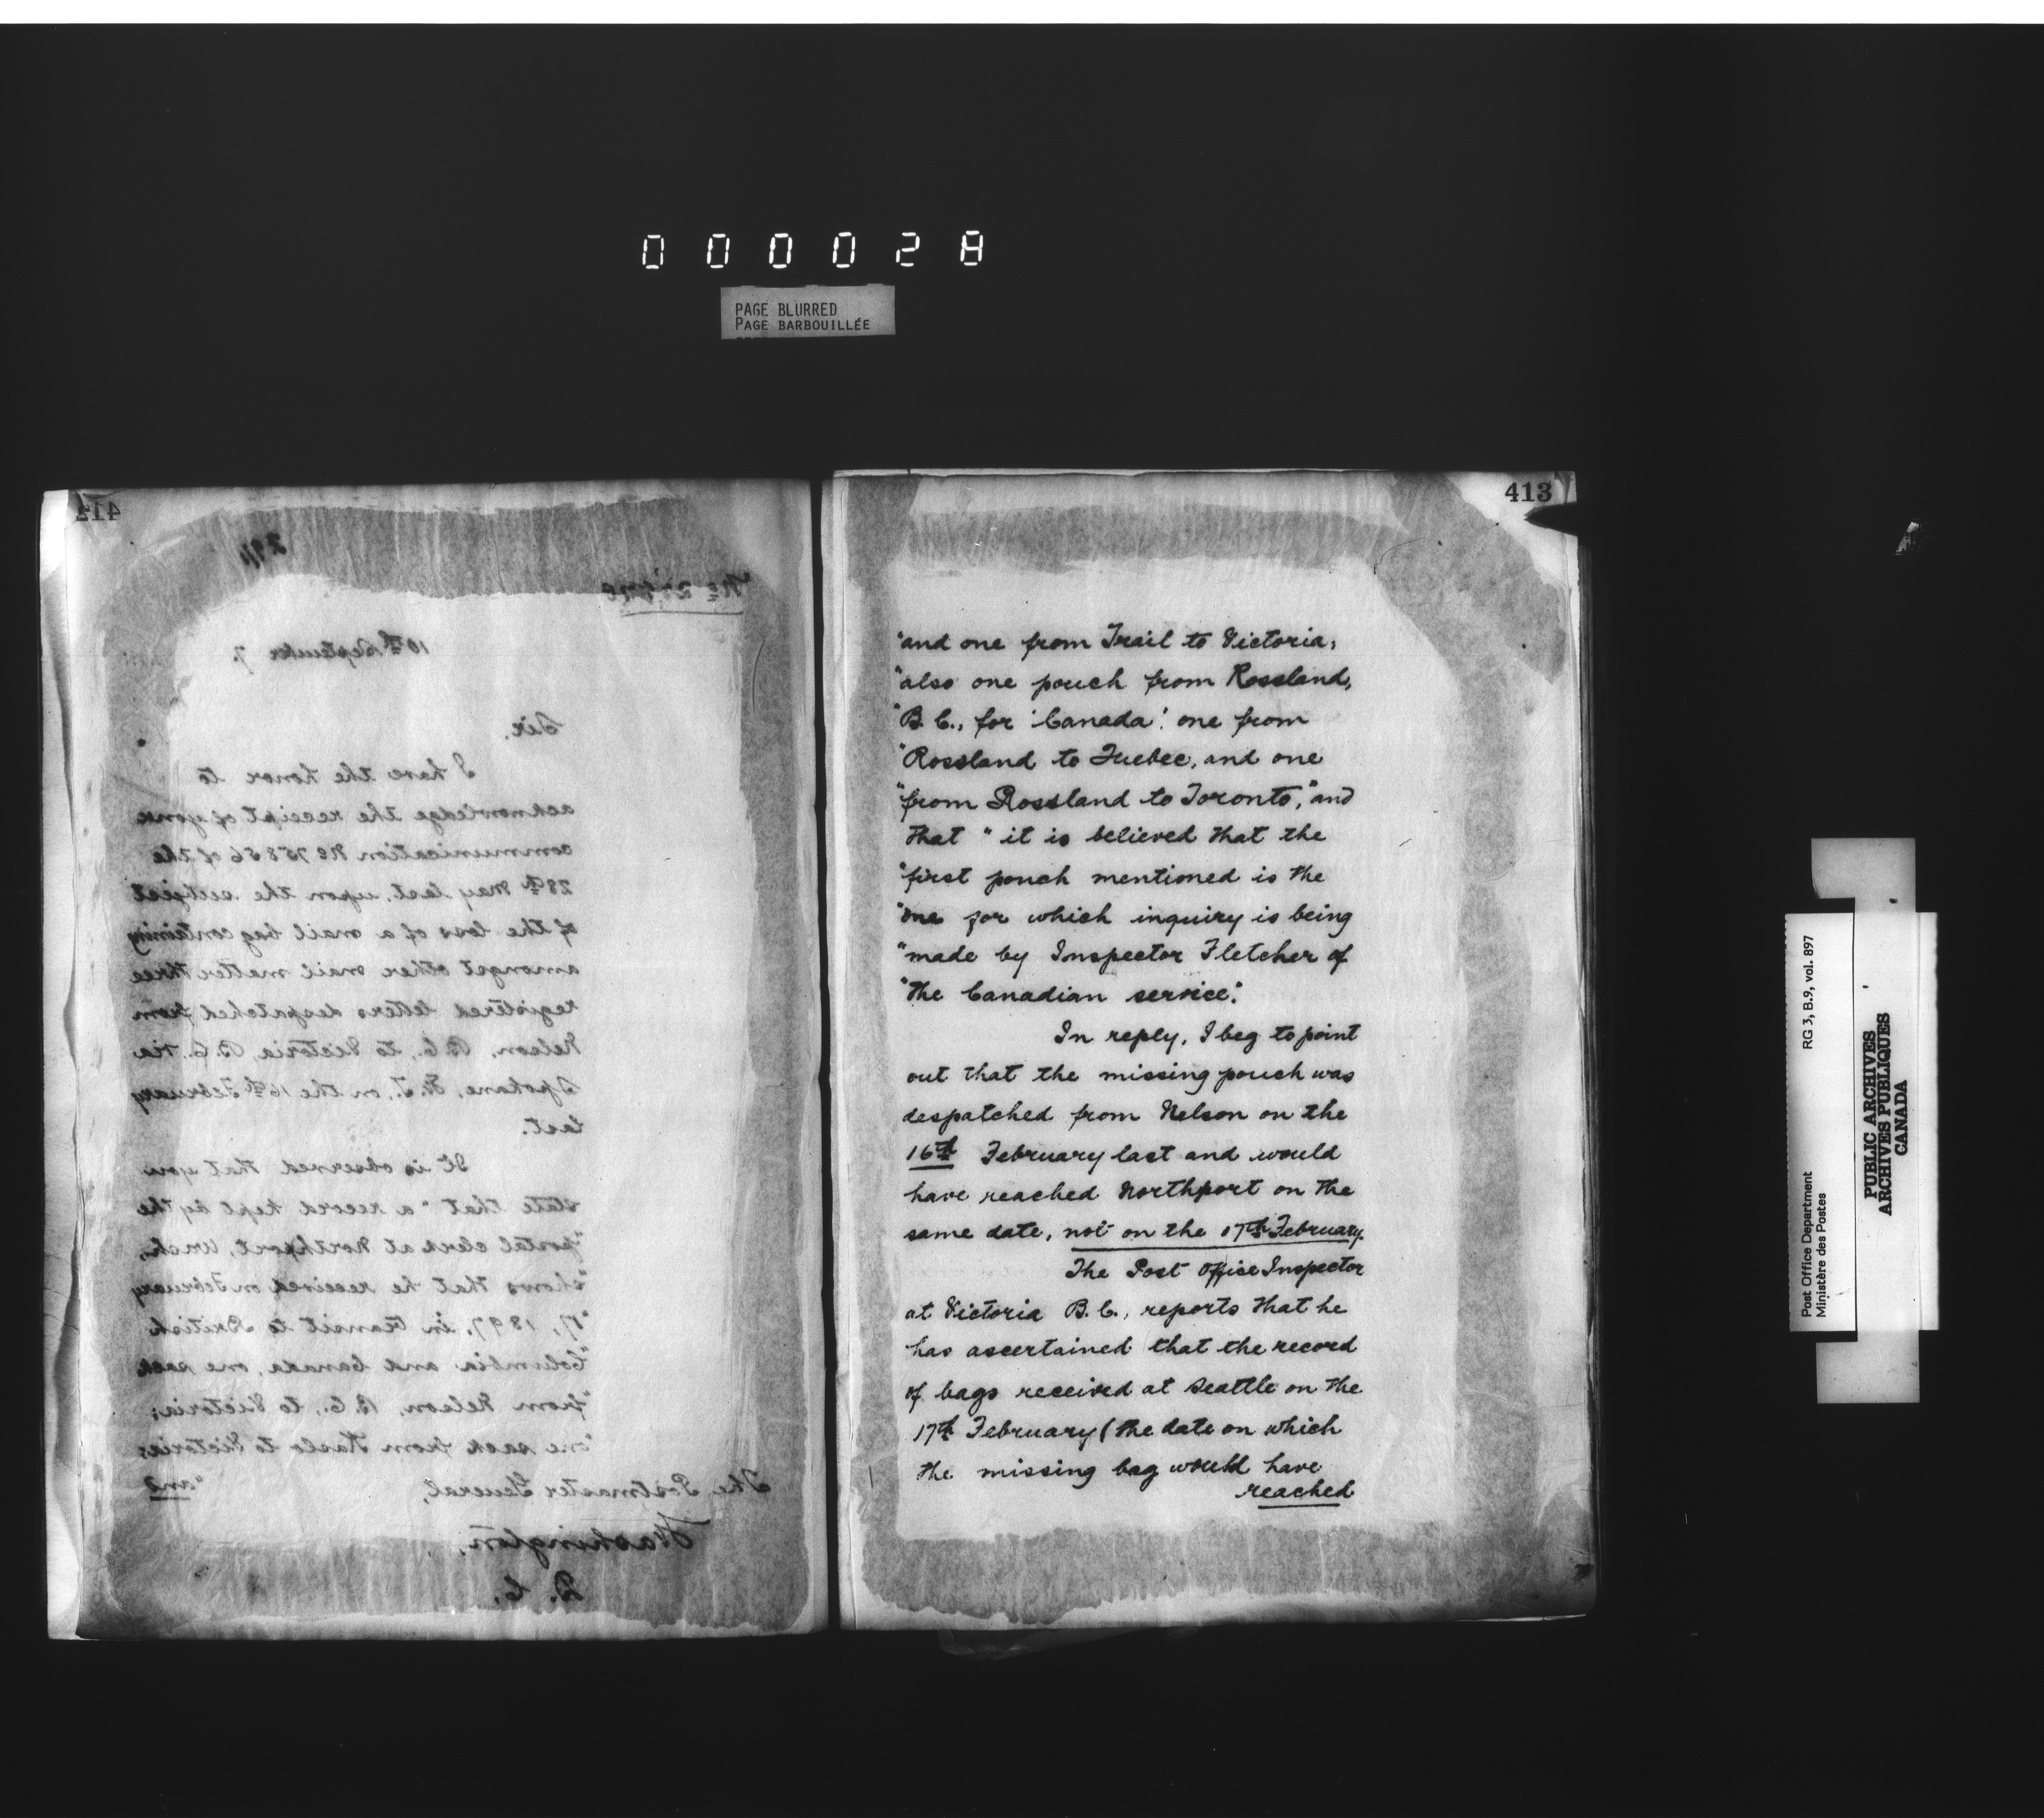 000028
PAGE BLURRED
PAGE BARBOUILLÉE
412
10th September 7.
Sir,
I have the honor to
acknowledge the receipt of your
communication No 75856 of the
28th May last, upon the subject
of the loss of a mail bag containing
amongst other mail matter three
registered letters despatched from
Nelson, B.C., to Victoria, B.C. via
Spokane, W.T., on the 16th February
last.
It is observed that you
state that "a record kept by the
"postal clerk at Northport, Wash.,
"shows that he received on February
"17, 1897, in transit to British
"Columbia and Canada, one sack
"from Nelson, B.C., to Victoria;
"one sack from Kaslo to Victoria;
"and
The Postmaster General,
Washington,
D. C.
413
"and one from Trail to Victoria;
"also one pouch from Rossland,
"B. C., for 'Canada'; one from
"Rossland to Quebec, and one
"from Rossland to Toronto," and
that "it is believed that the
"first pouch mentioned is the
"one for which inquiry is being
"made by Inspector Fletcher of
"the Canadian service."
In reply, I beg to point
out that the missing pouch was
despatched from Nelson on the
16th February last and would
have reached Northport on the
same date, not on the 17th February.
The Post Office Inspector
at Victoria B.C., reports that he
has ascertained that the record
of bags received at Seattle on the
17th February (the date on which
the missing bag would have
reached
Post Office Department
Ministère des Postes
RG 3, B.9, vol. 897
PUBLIC ARCHIVES
ARCHIVES PUBLIQUES
CANADA